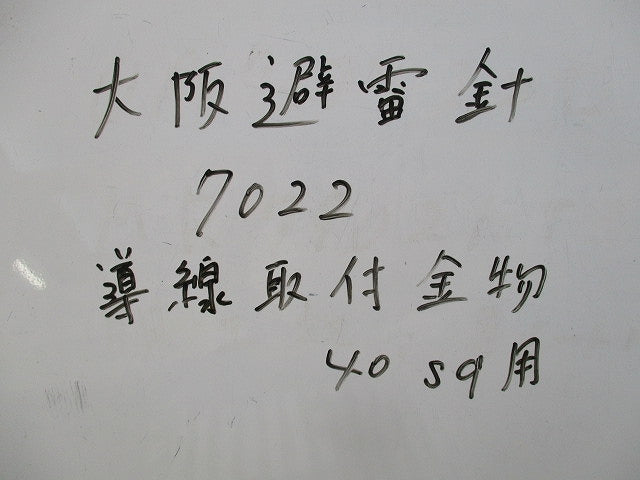 大阪避雷針
7022
導線取付金物
40sq用